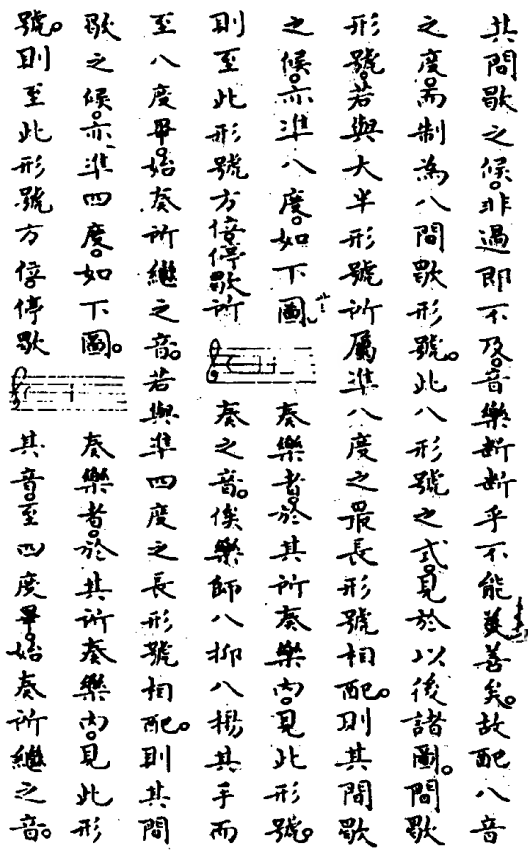 其間歇之候。非過即不及。音樂断断乎不能美善矣。故配八音
之度。而制為八間歇形號。此八形號之式。見於以後諸圖。間歇
形號。若與大半形號所屬準八度之最長形號相配。則其間歇
之候。亦準八度。如下圖。奏樂者。於其所奏樂內。見此形號。
則至此形號方倍停歇所奏之音。俟樂師八抑八揚其手而
至八度畢。始奏所繼之音。若與準四度之長形號相配。則其間
歇之候。亦準四度。如下圖。奏樂者。於其所奏樂內。見此形
號。則至此形號方倍停歇其音。至四度畢。始奏所繼之音。